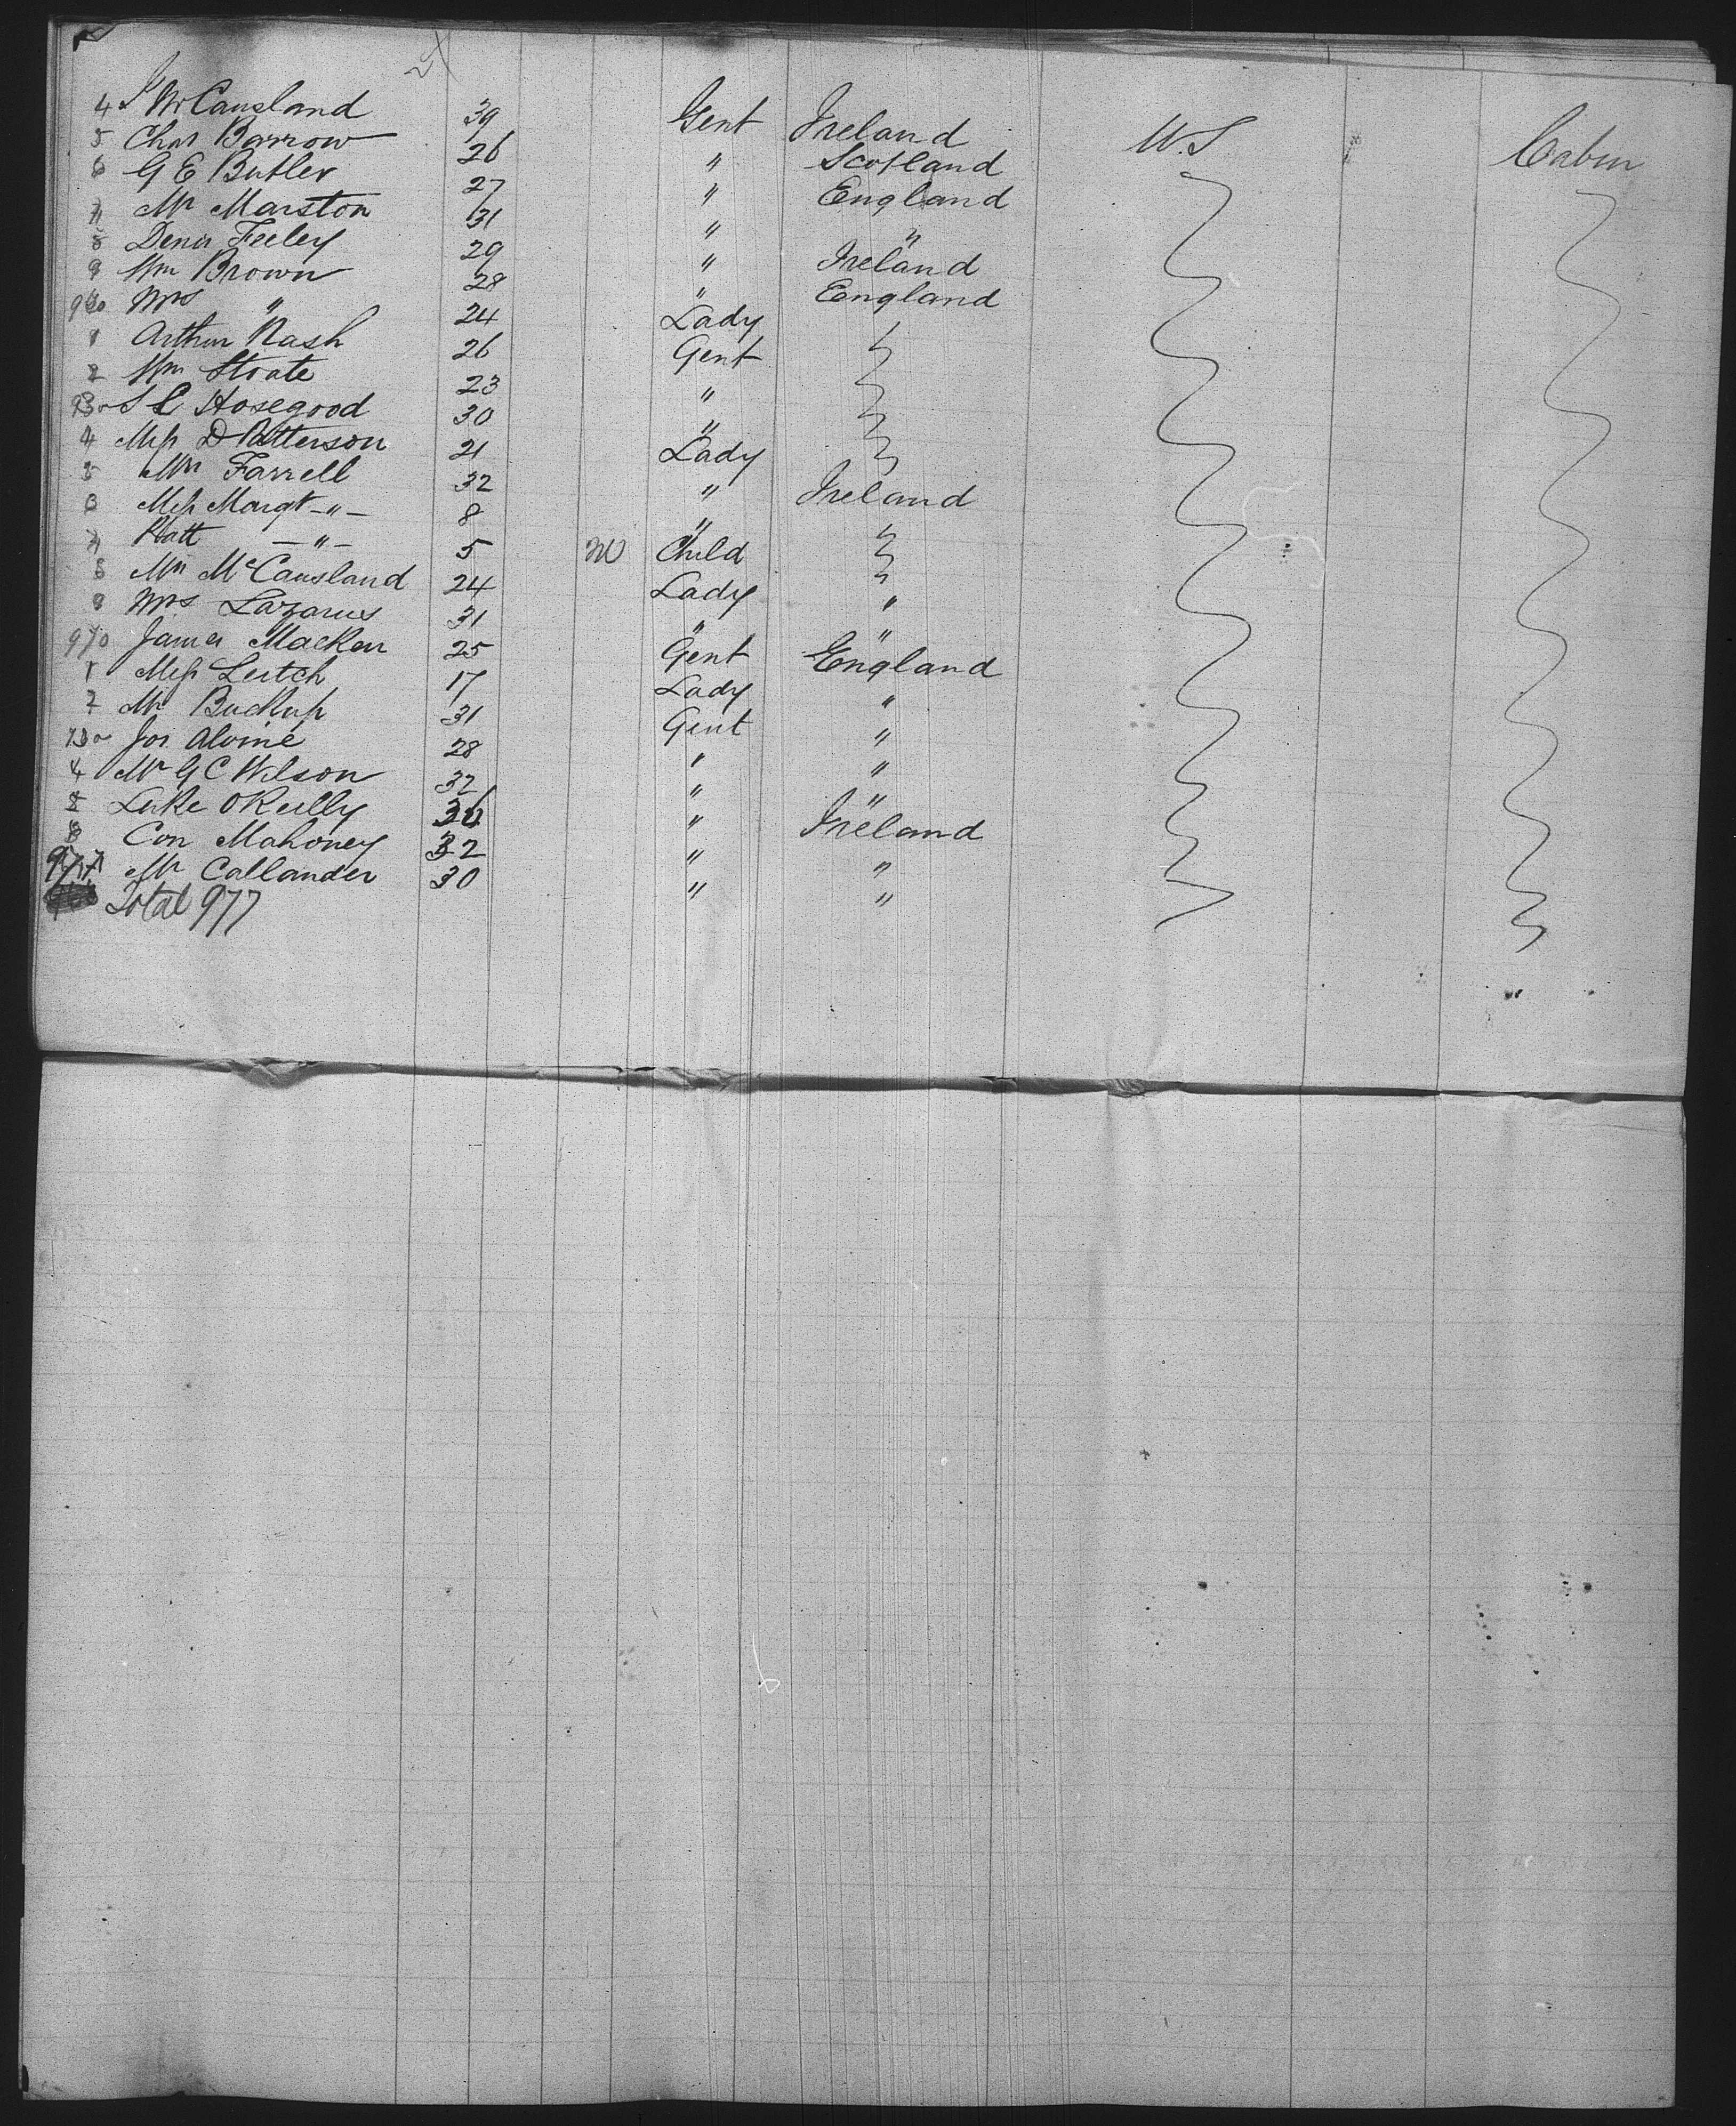 4 J McCausland 39 Gent Ireland U.S Cabin
5 Chas Barrow 26 " Scotland
6 G E Butler 27 " England
7 Mr Marston 31 " "
8 Denis Feeley 29 " Ireland
9 Wm Brown 28 " England
960 Mrs " 24 Lady
1 Arthur Nash 26 Gent
2 Wm Stoate 23 "
S C Hosegood 30 "
4 Miss D Patterson 21 Lady
5 Mrs Farrell 32 " Ireland
6 Miss Margt -"- 8 "
7 Matt -"- 5 m Child
8 Mrs McCausland 24 Lady "
9 Mrs Lazarus 31 " "
970 James Macken 25 Gent England
1 Miss Leitch 17 Lady "
2 Mr 31 Gent "
Jos Aloine 28 " "
4 Mr G C Wilson 32 " "
Luke OReilly " Ireland
Con Mahoney 32 " "
977 Mr Callander 30 " "
Total 977